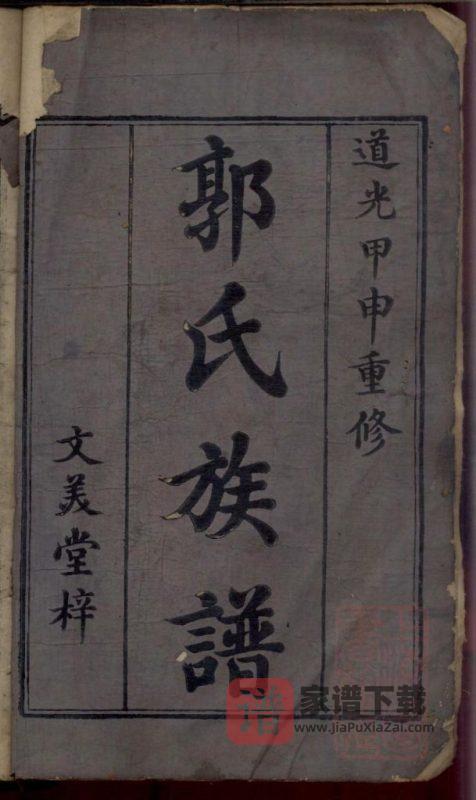 道光甲申重修
郭氏族譜
文美堂梓
谱 家谱下载
www.jiaPuXiaZai.com